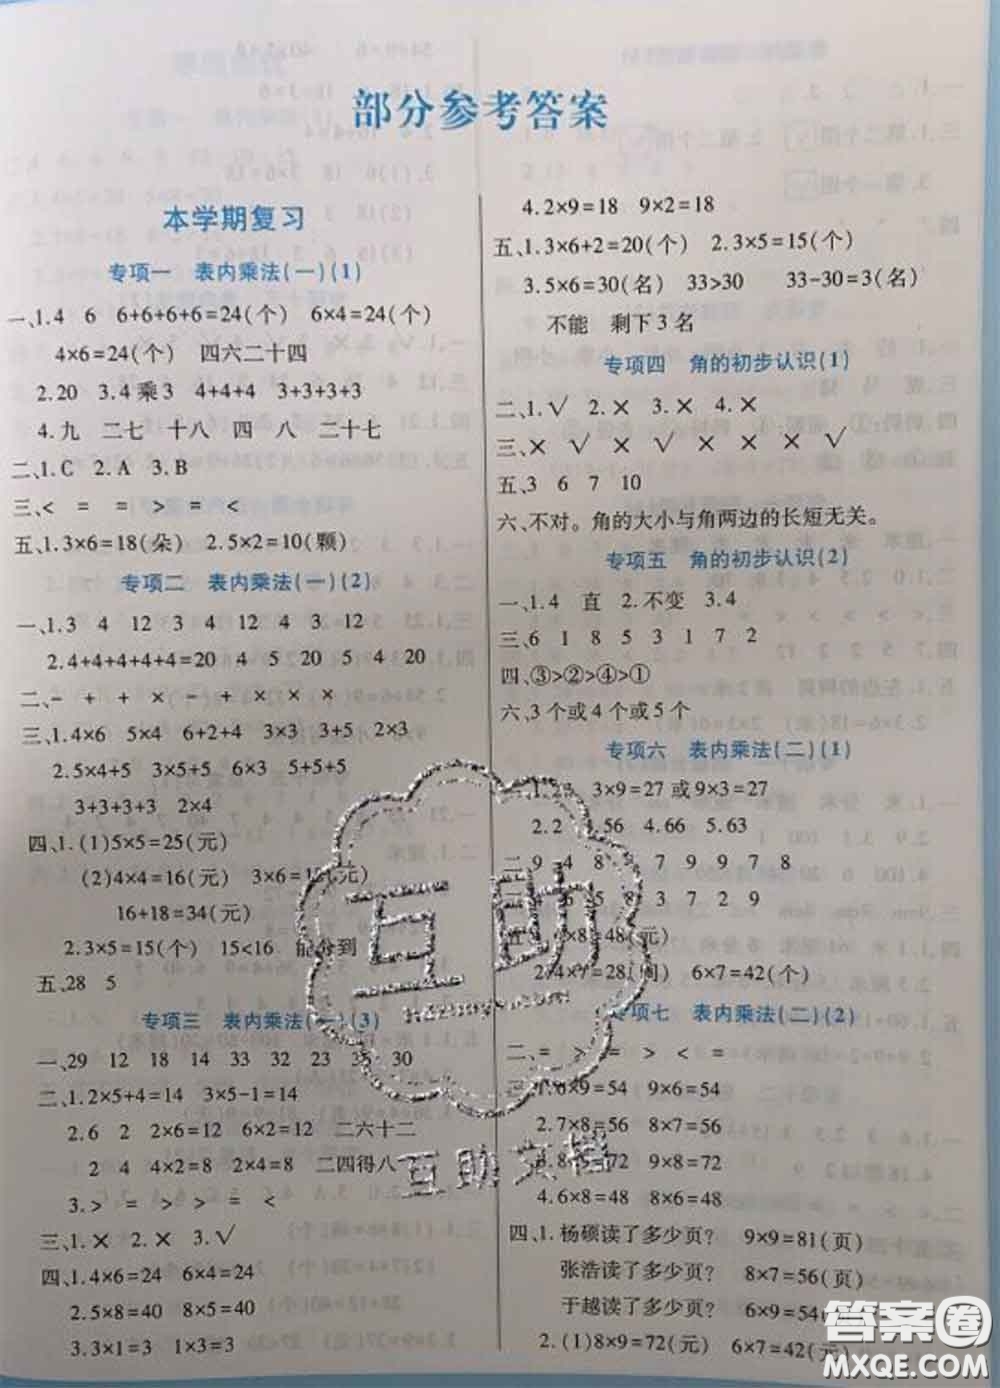 部分参考答案
本学期复习
专项一 表内乘法(一)(1)
一、1.4 6 6+6+6+6=24(个) 6×4=24(个)
4×6=24(个) 四六二十四
2.20 3.4 乘 3 4+4+4 3+3+3+3
4.九 二七 十八 四 八 二十七
二、1.C 2.A 3.B
三、< = = > = <
五、1.3×6=18(朵) 2.5×2=10(颗)
专项二 表内乘法(一)(2)
一、1.3 4 12 3 4 12 4 3 12
2.4+4+4+4+4=20 4 5 20 5 4 20
二、- + + × - + × × ×
三、1.4×6 5×4 6+2+4 3×3 5+3 2×3
2.5×4+5 3×5+5 6×3 5+5+5
3+3+3+3 2×4
四、1.(1)5×5=25(元)
(2)4×4=16(元) 3×6=18(元)
16+18=34(元)
2.3×5=15(个) 15<16 能分到
五、28 5
专项三 表内乘法(一)(3)
一、29 12 18 14 33 32 23 35 30
二、1.2×5+4=14 3×5-1=14
2.6 2 2×6=12 6×2=12 二六十二
2 4 4×2=8 2×4=8 二四得八
3.> = > > = <
三、1.× 2.× 3.√
四、1.4×6=24 6×4=24
2.5×8=40 8×5=40
3.3×1=3 1×3=3
4.2×9=18 9×2=18
五、1.3×6+2=20(个) 2.3×5=15(个)
3.5×6=30(名) 33>30 33-30=3(名)
不能 剩下 3 名
专项四 角的初步认识(1)
二、1.√ 2.× 3.× 4.×
三、× √ × √ × × × √
五、3 6 7 10
六、不对。角的大小与角两边的长短无关。
专项五 角的初步认识(2)
一、1.4 直 2.不变 3.4
三、6 1 8 5 3 1 7 2
四、③>②>④>①
六、3 个或 4 个或 5 个
专项六 表内乘法(二)(1)
一、1.27 3×9=27 或 9×3=27
2.2 3.56 4.66 5.63
二、9 4 8 7 9 9 7 8
5 8 3 7 2 9
五、 6×8=48(元)
2.4×7=28(周) 6×7=42(个)
专项七 表内乘法(二)(2)
二、= > = > < =
三、1.6×9=54 9×6=54
2.7×8=56 8×7=56
3.8×9=72 9×8=72
4.6×8=48 8×6=48
四、1.杨硕读了多少页? 9×9=81(页)
张浩读了多少页? 8×7=56(页)
于越读了多少页? 6×9=54
2.(1)8×9=72(元) 6×7=42(元)
互助
互助文档
答案圈
MXQE.COM